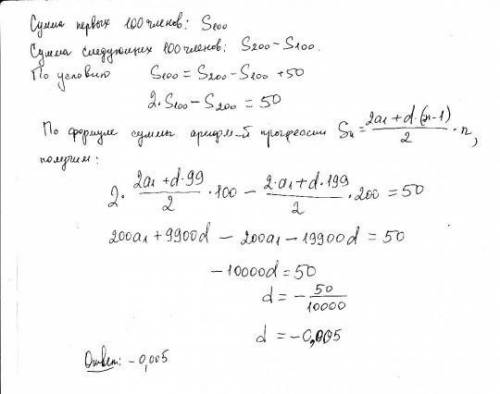 Сумма первых 100 членов: S₁₀₀
Сумма следующих 100 членов: S₂₀₀ - S₁₀₀.
По условию S₁₀₀ = S₂₀₀ - S₁₀₀ + 50
2·S₁₀₀ - S₂₀₀ = 50
По формуле суммы арифм-й прогрессии Sₙ = (2a₁ + d·(n-1))/2 · n,
получим:
2· (2a₁ + d·99)/2 ·100 - (2·a₁ + d·199)/2 ·200 = 50
200a₁ + 9900d - 200a₁ - 19900d = 50
-10000d = 50
d = - 50/10000
d = -0,005
Ответ: -0,005